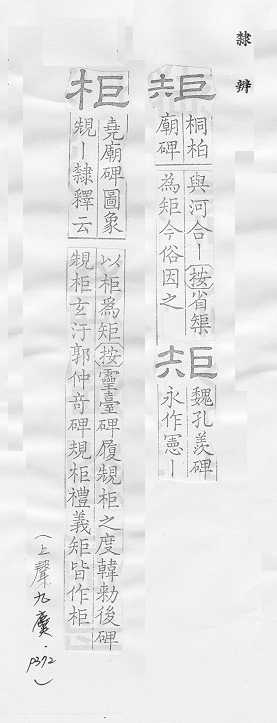 隸辨
矩
桐柏
廟碑
與河合丨按省榘
為矩今俗因之
矩
魏孔羨碑
永作憲丨
柜
堯廟碑圖象
規丨隸釋云
以柜為矩按靈臺碑履規柜之度韓勑後碑
規柜玄汙郭仲奇碑規柜禮義矩皆作柜
(上聲九麌.p372)